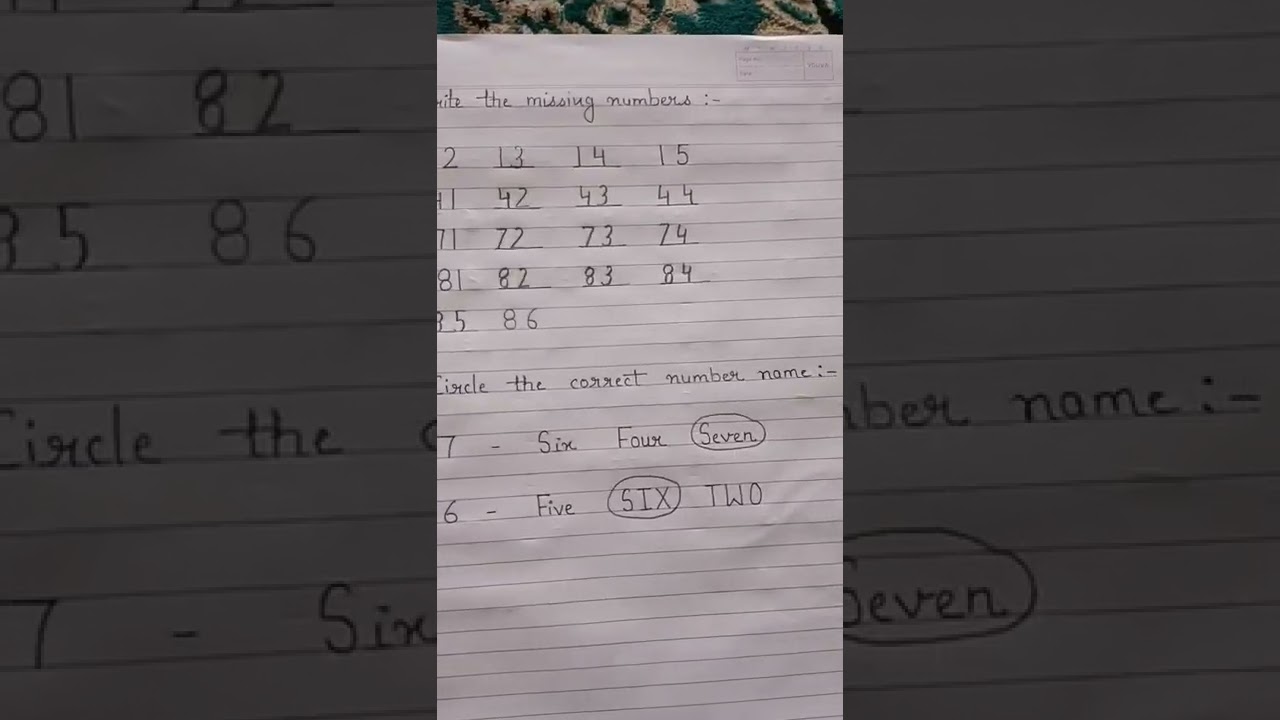 ite the missing numbers :-
2 13 14 15
41 42 43 44
71 72 73 74
81 82 83 84
85 86
Circle the correct number name :-
7 - Six Four Seven
6 - Five SIX TWO